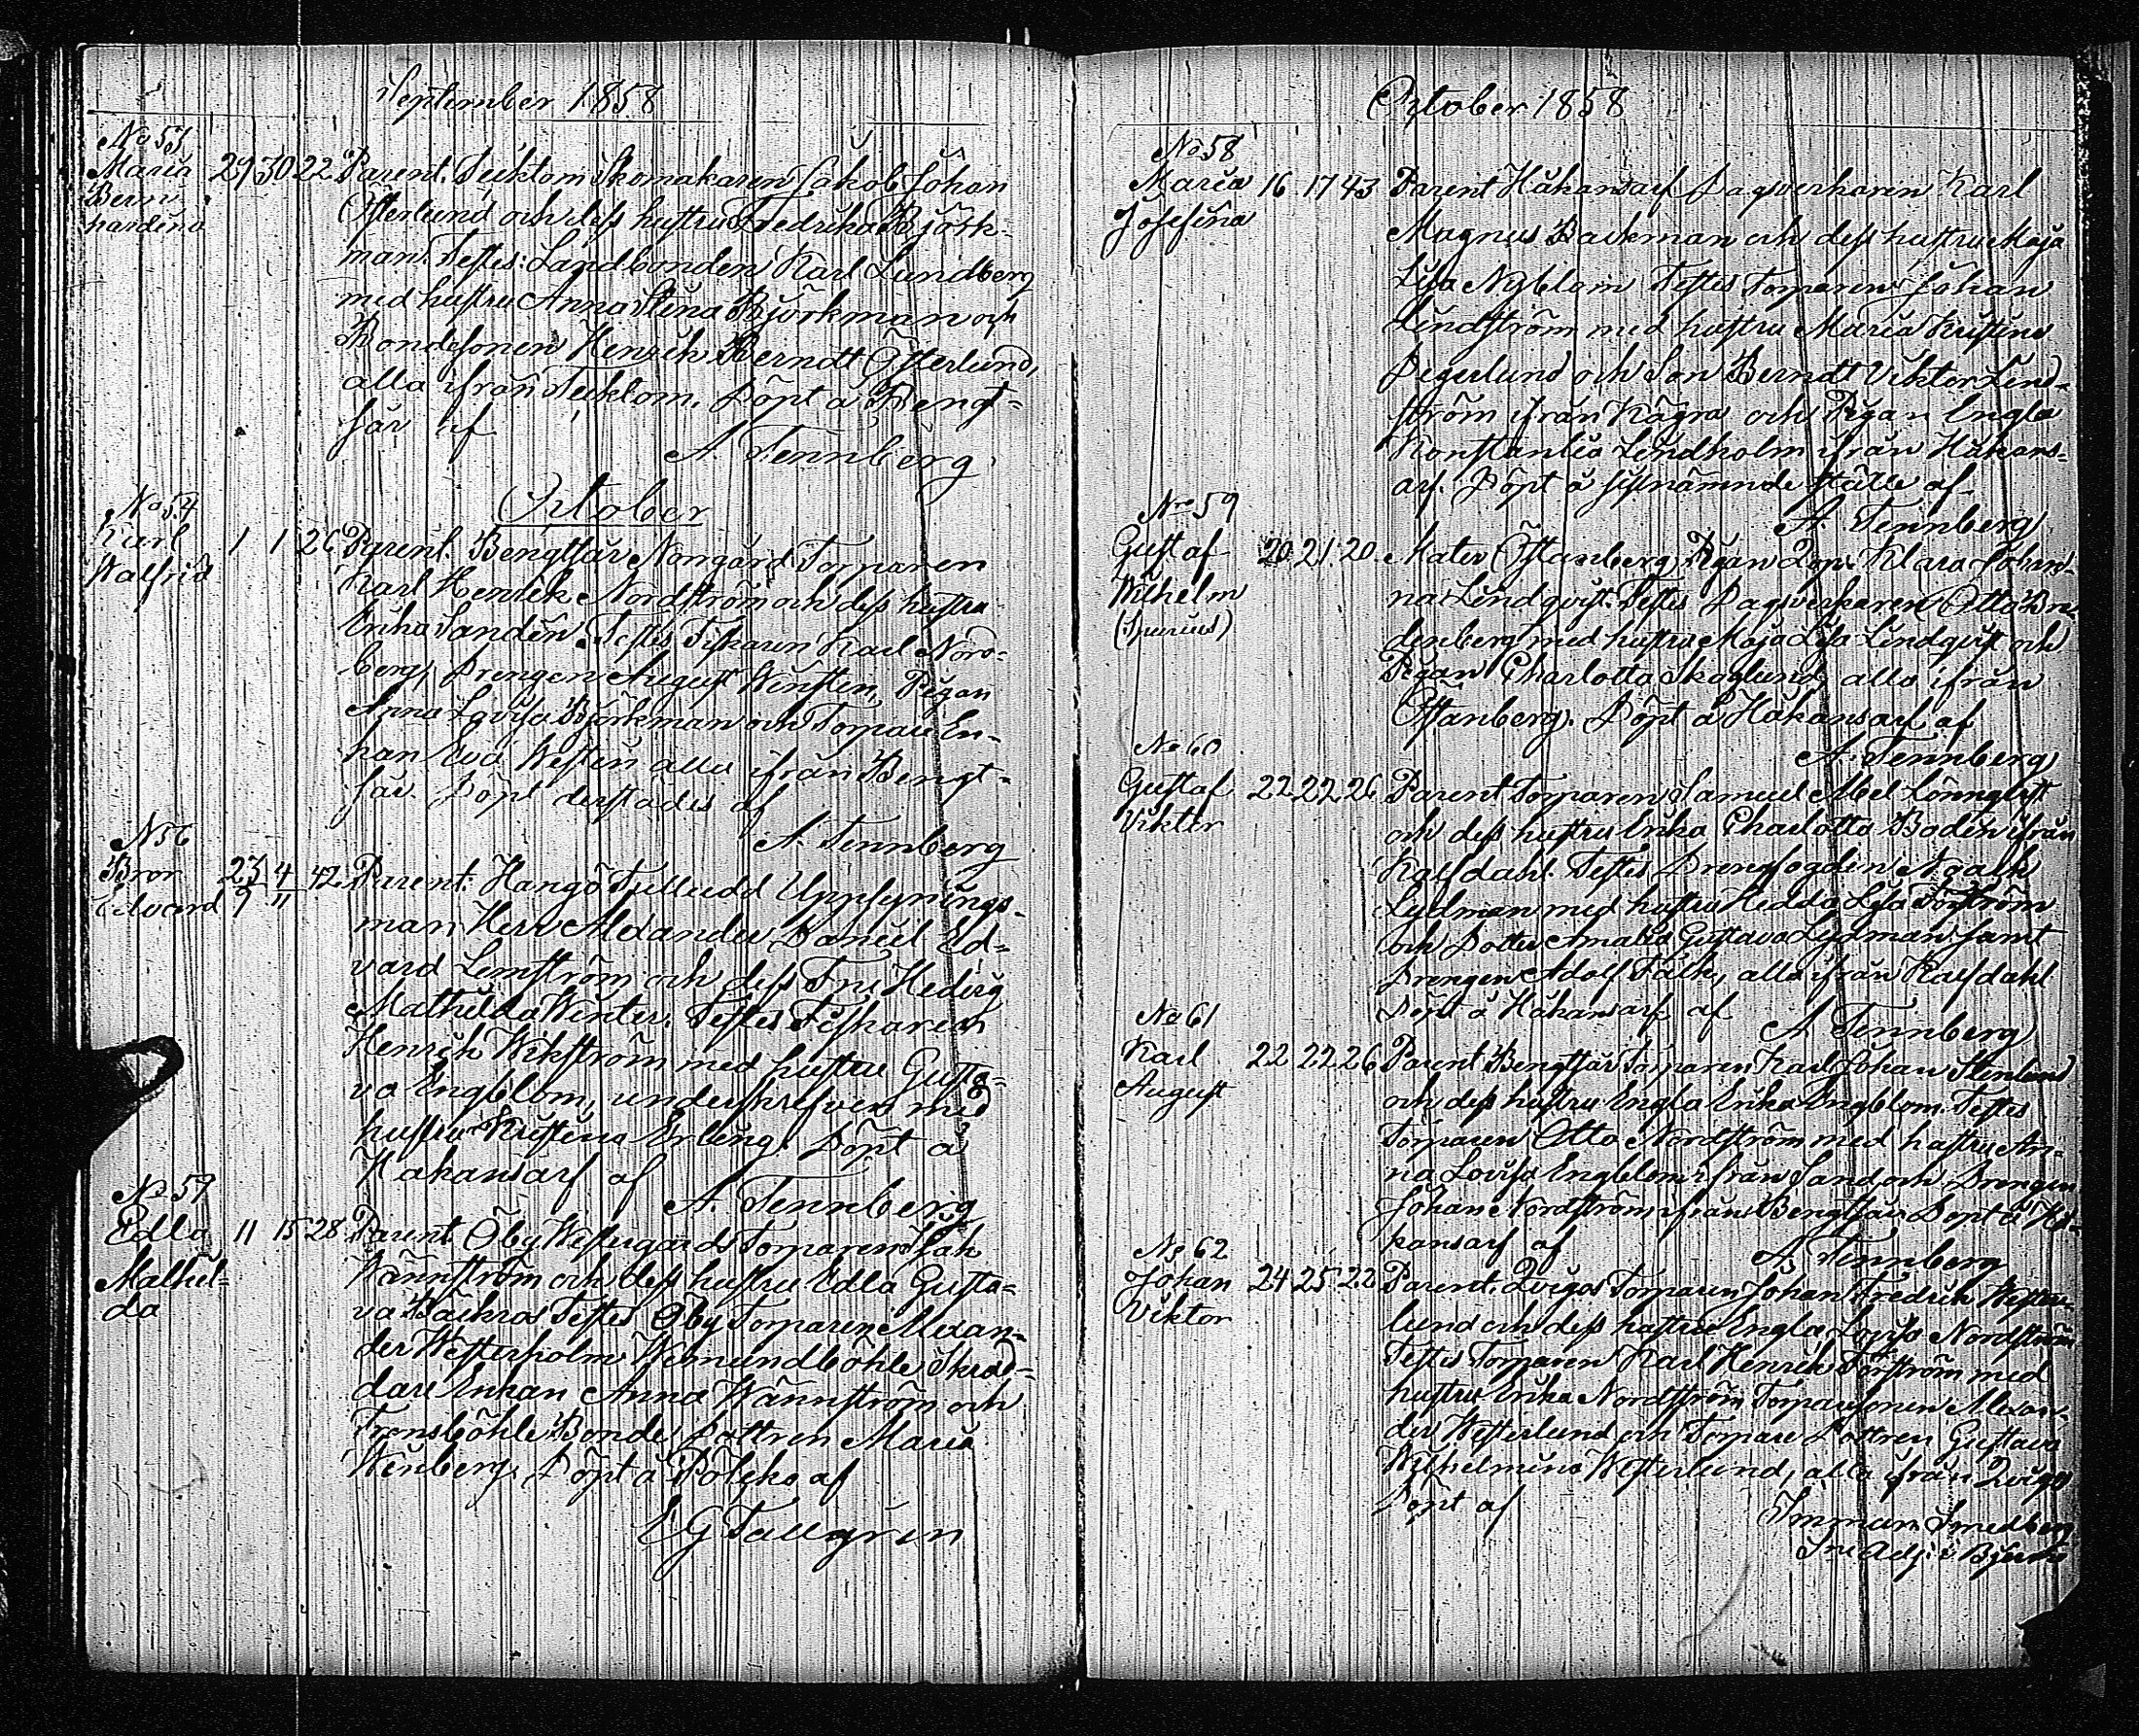 September 1858
No 53
Maria 29 30 22 Parent. Tecktom Skomakaren Jakob Johan
Bern-
hardina
Österlund och dess hustru Fredrika Björk-
man. Testes: Landbonden Karl Lundberg
med hustru Anna Stina Björkman och
Bondesonen Henrik Berndt Österlund,
alla ifrån Tecktom. Döpt å Bengt-
sår af
A. Tennberg
October
No 54
Karl 1 1 26 Parent. Bengtsår Norrgård Torparen
Walfrid
Karl Henrik Nordström och dess hustru
Erika Sandén. Testes Fiskaren Karl Nord-
berg, Drengen August Wensten, Pigan
Anna Lovisa Björkman och Torpare En-
kan Eva Westén alla ifrån Bengt-
sår. Döpt derstädes af
A. Tennberg
N 56
Bror 23/9 4/11 42 Parent. Hangö Tulludd Uppsynings-
Edvard
man Herr Alexander Daniel Ed-
vard Lemström och dess Fru Hedvig
Mathilda Winter. Testes Fiskaren
Henrik Wikström med hustru Gusta-
va Engblom, underskrifven med
hustru Kristina Erling. Döpt å
Hakansarf af
A. Tennberg
No 57
Edla 11 15 28 Parent Öby Westergårds Torparen Isak
Mathil-
da
Wännström och dess hustru Edla Gusta-
va Backras Testes Öby Torparen Alexan-
der Westerholm Wemundböhle Skräd-
dare Enkan Anna Wännström och
Fransböhle Bonde Dottren Maria
Wenberg. Döpt å af
E G Tallgren
October 1858
No 58
Maria 16 17 43 Parent Håkansarf Dagsverkaren Karl
Josefina
Magnus Backman och dess hustru Maja
Lisa Nyblom Testes Torparen Johan
Lindström med hustru Maria Kristina
Degerlund och Son Berndt Viktor Lind-
ström ifrån Kägra och Pigan Engla
Konstantia Lindholm ifrån Håkans-
arf. Döpt å sistnämnde ställe af
A. Tennberg
No 59
Gustaf 20 21 20 Mater Östanberg Pigan Klara Johan-
Wilhelm
(Spurius)
na Lindqvist. Testes Dagsverkaren Otto Bran-
denberg med hustru Maja Lisa Lindqvist och
Pigan Charlotta Skoglund, alla ifrån
Östanberg. Döpt å Håkansarf af
A. Tennberg
No 60
Gustaf 22 22 26 Parent Torparen Samuel Abel Lönnqvist
Viktor
och dess hustru Erika Charlotta Bodén ifrån
Kalfdahl. Testes Drengfogden Noak
Lydman med hustru Hedda Lisa Törström
och Dotter Amalia Gustava Lydman samt
Drengen Adolf Falk, alla ifrån Kalfdahl
Döpt å Håkansarf af
A Tennberg
No 61
Karl 22 22 26 Parent Bengtsår Torparen Karl Johan Stenlund
August
och dess hustru Engla Erika Engblom. Testes
Torparen Otto Nordström med hustru An-
na Lovisa Engblom ifrån Sand, och Drengen
Johan Nordström ifrån Bengtsår Döpt å Hå-
kansarf af
A. Tennberg
No 62
Johan 24 25 22 Parent. Torparen Johan Fredrik Wester-
Viktor
lund och dess hustru Engla Lovisa Nordström
Testes Torparen Karl Henrik Törström med
hustru Erika Nordström Torparesonen Alexan-
der Westerlund och Torpare Dottren Gustava
Wilhelmina Westerlund, alla ifrån
Döpt af
Smedberg